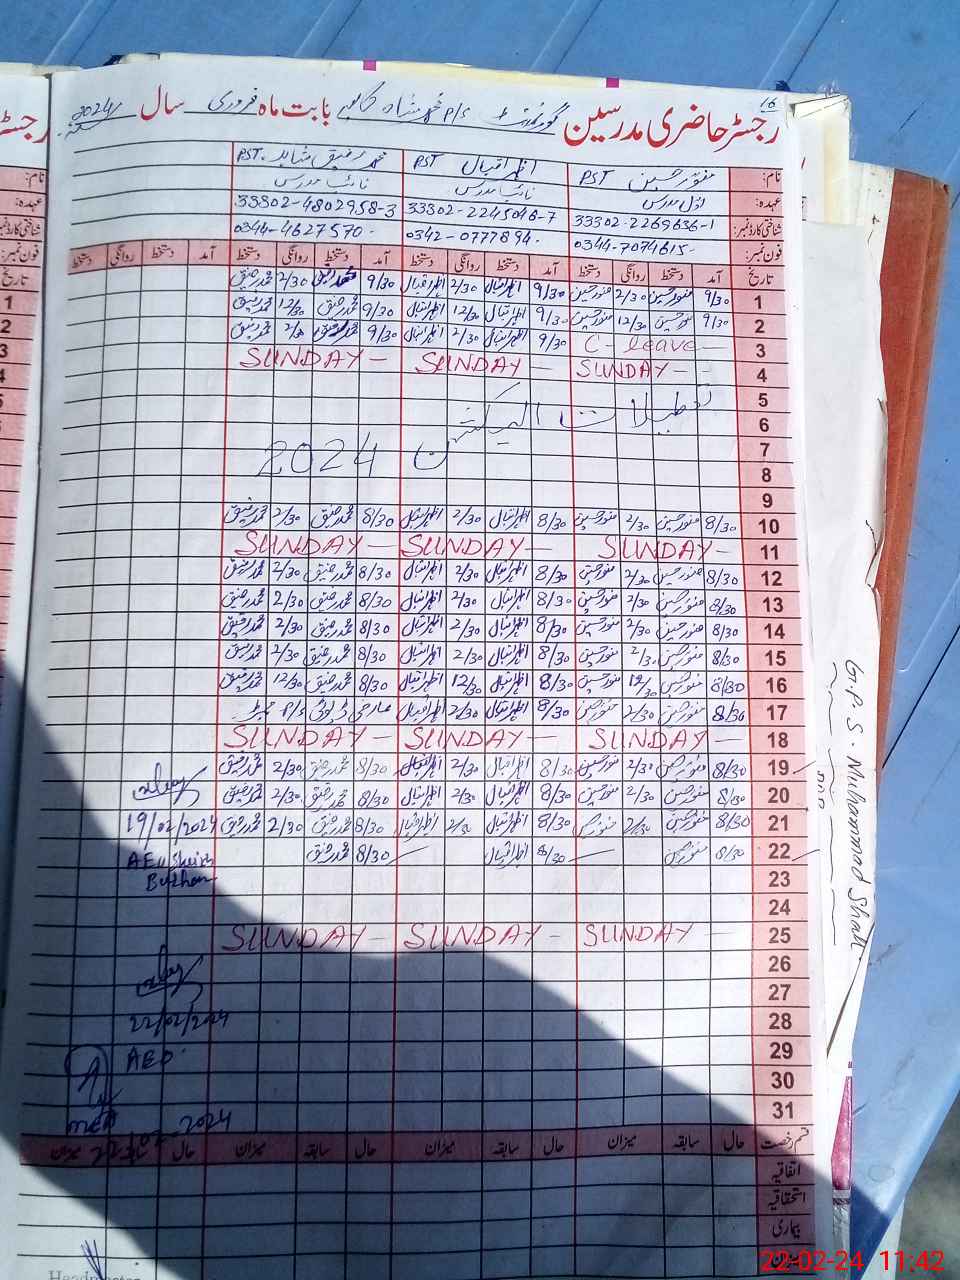 16
رجسٹر حاضری مدرسین گورنمنٹ P/S محمد شاہ بابت ماہ فروری سال 2024
نام: منور حسین PST اظہر اقبال PST محمد رفیق شاہد PST.
عہدہ: اول مدرس نائب مدرس نائب مدرس
شناختی کارڈ نمبر: 33302-2269636-1 33302-2245048-7 33302-4802958-3
فون نمبر: 0344-7074615- 0342-0777894. 0344-4627570-
تاریخ آمد دستخط روانگی دستخط آمد دستخط روانگی دستخط آمد دستخط روانگی دستخط آمد دستخط روانگی دستخط
1 9/30 منور حسین 2/30 منور حسین 9/30 اظہر اقبال 2/30 اظہر اقبال 9/30 محمد رفیق 2/30 محمد رفیق
2 9/30 منور حسین 12/30 منور حسین 9/30 اظہر اقبال 12/30 اظہر اقبال 9/30 محمد رفیق 12/30 محمد رفیق
3 C-leave- 9/30 اظہر اقبال 2/30 اظہر اقبال 9/30 محمد رفیق 2/30 محمد رفیق
4 SUNDAY - SUNDAY - SUNDAY -
5
6 تعطیلات الیکشن
7 2024
8
9
10 8/30 منور حسین 2/30 منور حسین 8/30 اظہر اقبال 2/30 اظہر اقبال 8/30 محمد رفیق 2/30 محمد رفیق
11 SUNDAY - SUNDAY - SUNDAY -
12 8/30 منور حسین 2/30 منور حسین 8/30 اظہر اقبال 2/30 اظہر اقبال 8/30 محمد رفیق 2/30 محمد رفیق
13 8/30 منور حسین 2/30 منور حسین 8/30 اظہر اقبال 2/30 اظہر اقبال 8/30 محمد رفیق 2/30 محمد رفیق
14 8/30 منور حسین 2/30 منور حسین 8/30 اظہر اقبال 2/30 اظہر اقبال 8/30 محمد رفیق 2/30 محمد رفیق
15 8/30 منور حسین 2/30 منور حسین 8/30 اظہر اقبال 2/30 اظہر اقبال 8/30 محمد رفیق 2/30 محمد رفیق
16 8/30 منور حسین 12/30 منور حسین 8/30 اظہر اقبال 12/30 اظہر اقبال 8/30 محمد رفیق 12/30 محمد رفیق
17 8/30 منور حسین 2/30 منور حسین 8/30 اظہر اقبال 2/30 اظہر اقبال عارضی ڈیوٹی P/S
18 SUNDAY - SUNDAY - SUNDAY -
19 8/30 منور حسین 2/30 منور حسین 8/30 اظہر اقبال 2/30 اظہر اقبال 8/30 محمد رفیق 2/30 محمد رفیق
20 8/30 منور حسین 2/30 منور حسین 8/30 اظہر اقبال 2/30 اظہر اقبال 8/30 محمد رفیق 2/30 محمد رفیق
21 8/30 منور حسین 2/30 منور حسین 8/30 اظہر اقبال 2/30 اظہر اقبال 8/30 محمد رفیق 2/30 محمد رفیق 19/02/2024
22 8/30 منور حسین 8/30 اظہر اقبال 8/30 محمد رفیق AEO
23
24
25 SUNDAY - SUNDAY - SUNDAY -
26
27
28 22/02/2024
29 AEO
30
31 22-02-2024
قسم رخصت حال سابقہ میزان حال سابقہ میزان حال سابقہ میزان حال سابقہ میزان
اتفاقیہ
استحقاقیہ
بیماری
Headmaster
G.P.S. Muhammad Shah
22-02-24 11:42